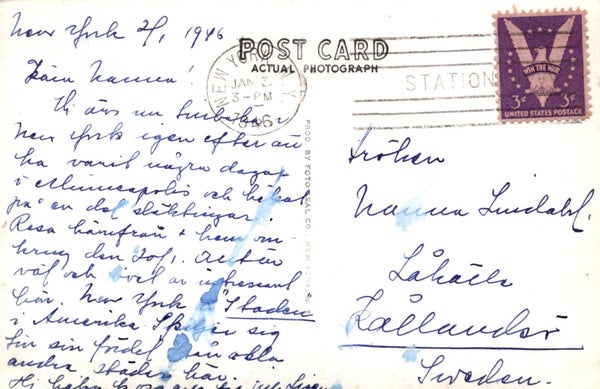 New York 2/1 1946
Kära Nanna!
Vi äro nu tillbaka i
New York igen efter att
ha varit några dagar
i Minneapolis och hälsat
på en del släktingar.
Resa härifrån hem om-
kring den 20/1. Allt är
väl och livet är intressant
här. New York är "Staden"
i Amerika. Skiljer sig
till sin fördel från alla
andra städer här.
Vi
POST CARD
ACTUAL PHOTOGRAPH
NEW YORK, N.Y.
JAN 2
3-PM
1946
STATION
WIN THE WAR
3¢ 3¢
UNITED STATES POSTAGE
PROD. BY FOTO SEAL CO. NEW YORK
Fröken
Nanna Lindahl.
Låhälla
Källandsö
Sweden.